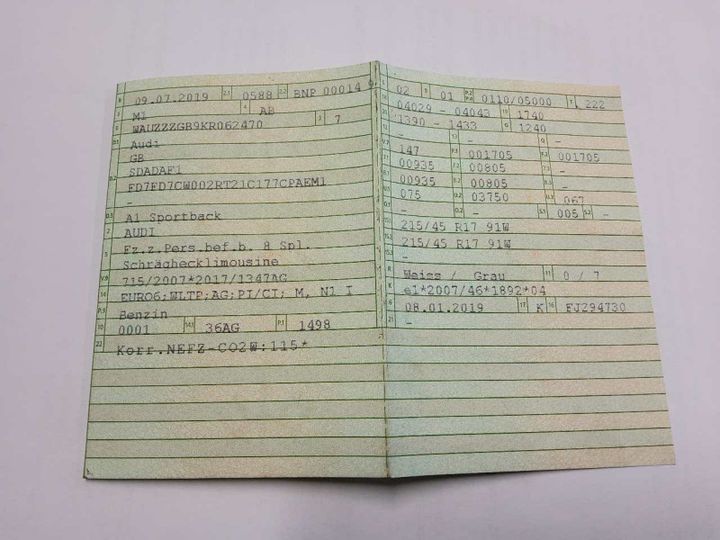 09.07.2019 2.1 0588 2.2 BNP 00014
M1 4 AB
WAUZZZGB9KR062470 3 7
Audi
GB
SDADAF1
FD7FD7CW002RT21C177CPAEM1
-
A1 Sportback
AUDI
Fz.z.Pers.bef.b. 8 Spl.
Schräghecklimousine
715/2007*2017/1347AG
EURO6;WLTP;AG;PI/CI; M, N1 I
Benzin
0001 14.1 36AG P.1 1498
22 Korr.NEFZ-CO2W:115*
02 9 01 P.2 P.4 0110/05000 T 222
04029 - 04043 1740
1390 - 1433 G 1240
- - -
147 001705 001705
00935 00805 -
00935 00805 -
075 03750 067
- - S.1 005 S.2 -
215/45 R17 91W
215/45 R17 91W
-
Weiss / Grau 11 0 / 7
e1*2007/46*1892*04
08.01.2019 17 K 16 FJ294730
21 -